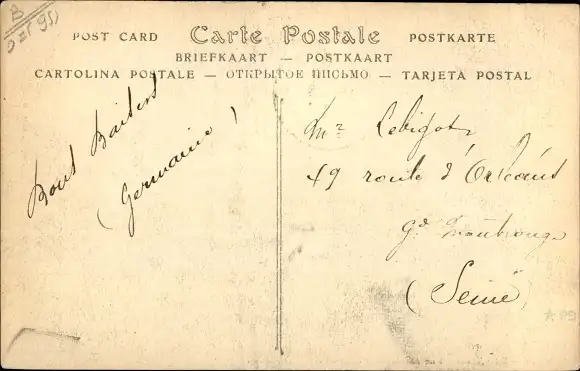 POST CARD Carte Postale POSTKARTE
BRIEFKAART — POSTKAART
CARTOLINA POSTALE — ОТКРЫТОЕ ПИСЬМО — TARJETA POSTAL
Bons Baisers
(Germaine)
Mr Lebigot
49 route d'Orléans
Gd Montrouge
(Seine)